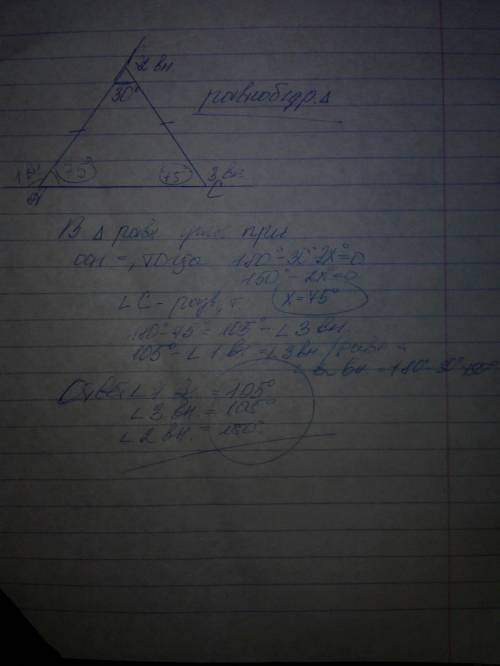 2 вн.
30°
равнобедр. Δ
1 вн
75°
75°
3 вн.
A
C
В Δ равн. углы при
осн =, тогда 180°-30°-2x=0
150°-2x=0
∠C - разв, т.
x=75°
180°-75=105°-∠3 вн.
105°-∠1 вн=∠3вн
2 вн = 180°-30°
Ответ: ∠1 = 105°
∠3 вн. = 105°
∠2 вн. = 150°